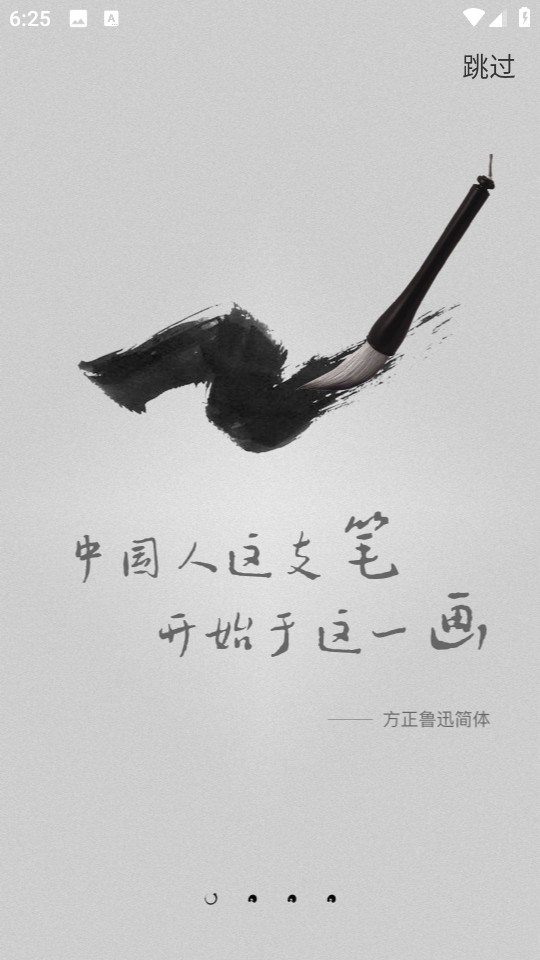 6:25
跳过
中国人这支笔
开始于这一画
—— 方正鲁迅简体